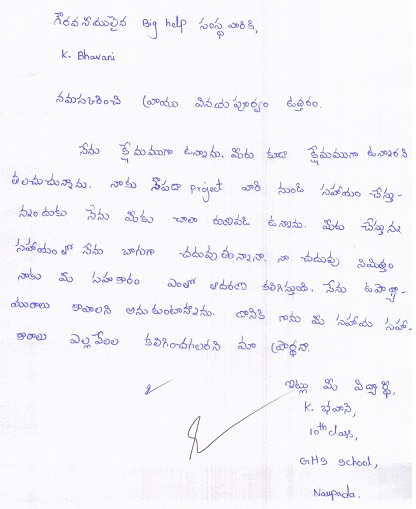 గౌరవనీయులైన Big help సంస్థ వారికి,
K. Bhavani
నమస్కరించి వ్రాయు వినయ పూర్వం ఉత్తరం.
నేను క్షేమముగా ఉన్నాను. మీరు కూడా క్షేమముగా ఉన్నారని
తలచుచున్నాను. నాకు నౌపడా project వారి నుండి సహాయం చేస్తు-
నందుకు నేను మీకు చాలా ఉన్నాను. మీరు చేస్తున్న
సహాయంతో నేను బాగుగా చదువుతున్నాను. నా చదువు నిమిత్తం
నాకు మీ సహకారం ఎంతో ఆదరణ కలిగిస్తుంది. నేను ఉపాధ్యా-
యురాలు కావాలని అనుకుంటున్నాను. దానికి గాను మీ సహాయ సహా-
కారాలు ఎల్లవేళల కలిగించగలరని మా ప్రార్థన.
ఇట్లు మీ విద్యార్థి,
K. భవాని,
10th class,
GHS School,
Naupada.